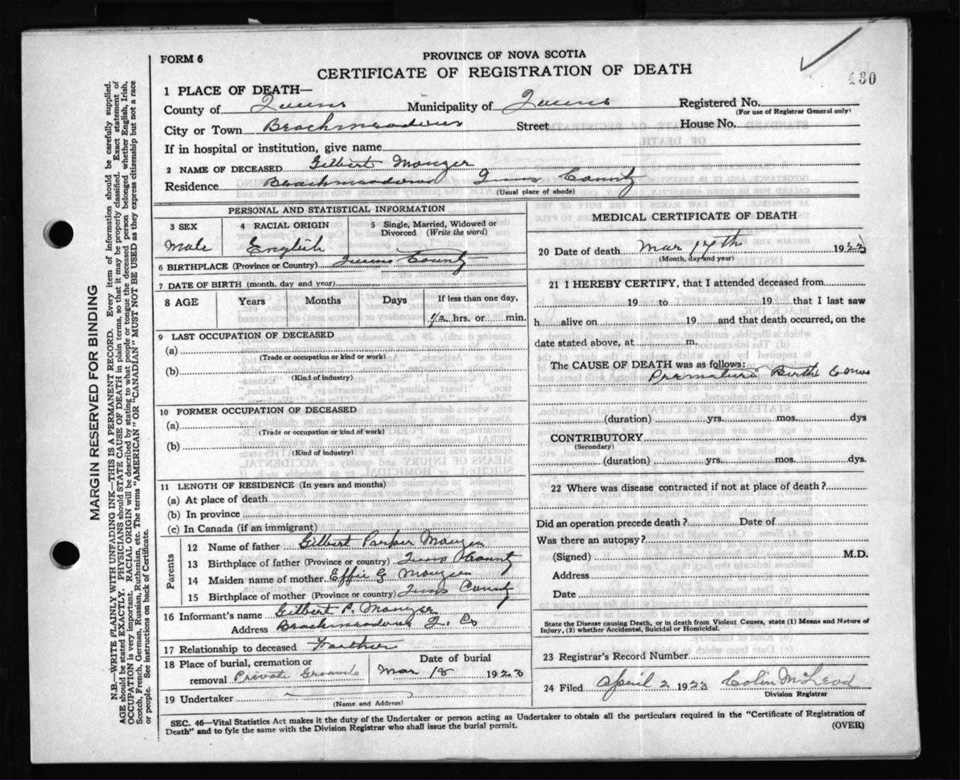 FORM 6
PROVINCE OF NOVA SCOTIA
CERTIFICATE OF REGISTRATION OF DEATH
430
1 PLACE OF DEATH—
County of Queens Municipality of Queens Registered No.
(For use of Registrar General only)
City or Town Beachmeadows Street House No.
If in hospital or institution, give name
2 NAME OF DECEASED Gilbert Mouzer
Residence Beachmeadows Queens County
(Usual place of abode)
PERSONAL AND STATISTICAL INFORMATION
3 SEX 4 RACIAL ORIGIN 5 Single, Married, Widowed or Divorced (Write the word)
Male English
6 BIRTHPLACE (Province or Country) Queens County
7 DATE OF BIRTH (month, day and year)
8 AGE Years Months Days If less than one day,
1/2 hrs. or min.
9 LAST OCCUPATION OF DECEASED
(a)
(Trade or occupation or kind or work)
(b)
(Kind of industry)
10 FORMER OCCUPATION OF DECEASED
(a)
(Trade or occupation or kind of work)
(b)
(Kind of industry)
11 LENGTH OF RESIDENCE (In years and months)
(a) At place of death
(b) In province
(c) In Canada (if an immigrant)
Parents
12 Name of father Gilbert Parker Mouzer
13 Birthplace of father (Province or country) Queens County
14 Maiden name of mother Effie G Mouzer
15 Birthplace of mother (Province or country) Queens County
16 Informant's name Gilbert P. Mouzer
Address Beachmeadows Q. Co
17 Relationship to deceased Farther
18 Place of burial, cremation or removal Private Grounds Date of burial Mar 18 1923
19 Undertaker
(Name and Address)
MEDICAL CERTIFICATE OF DEATH
20 Date of death Mar 17th 1923
(Month, day and year)
21 I HEREBY CERTIFY, that I attended deceased from
19 to 19 that I last saw
h alive on 19 and that death occurred, on the
date stated above, at m.
The CAUSE OF DEATH was as follows:
Premature Birth 6 mos
(duration) yrs. mos. dys
CONTRIBUTORY
(Secondary)
(duration) yrs. mos. dys.
22 Where was disease contracted if not at place of death?
Did an operation precede death? Date of
Was there an autopsy?
(Signed) M.D.
Address
Date
State the Disease causing Death, or in death from Violent Causes, state (1) Means and Nature of
Injury, (2) whether Accidental, Suicidal or Homicidal.
23 Registrar's Record Number
24 Filed April 2 1923 Colin McLeod
Division Registrar
SEC. 46—Vital Statistics Act makes it the duty of the Undertaker or person acting as Undertaker to obtain all the particulars required in the "Certificate of Registration of
Death" and to fyle the same with the Division Registrar who shall issue the burial permit. (OVER)
MARGIN RESERVED FOR BINDING
N.B.—WRITE PLAINLY WITH UNFADING INK—THIS IS A PERMANENT RECORD. Every item of information should be carefully supplied.
AGE should be stated EXACTLY. PHYSICIANS should STATE CAUSE OF DEATH in plain terms, so that it may be properly classified. Exact statement of
OCCUPATION is very important. RACIAL ORIGIN will be described by stating to what people or tongue the deceased person belonged whether English, Irish,
Scotch, French, German, Russian, Ruthenian, etc. The terms "AMERICAN" OR "CANADIAN" MUST NOT BE USED as they express citizenship but not a race
or people. See instructions on back of Certificate.